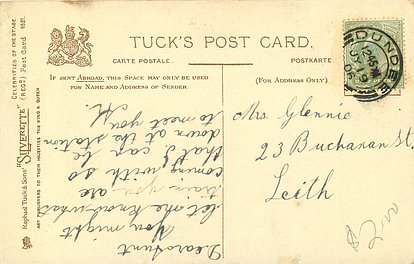 TUCK'S POST CARD.
CARTE POSTALE.
POSTKARTE
IF SENT ABROAD, THIS SPACE MAY ONLY BE USED
FOR NAME AND ADDRESS OF SENDER.
(FOR ADDRESS ONLY.)
DUNDEE
Raphael Tuck & Sons' "SILVERETTE" CELEBRITIES OF THE STAGE
(REGD.) Post Card
ART PUBLISHERS TO THEIR MAJESTIES THE KING & QUEEN
Dear Aunt
You might
let me know what
train you are
coming with so
that I can be
down at the station
to meet you
Mrs. Glennie
23 Buchanan St.
Leith
$2.00